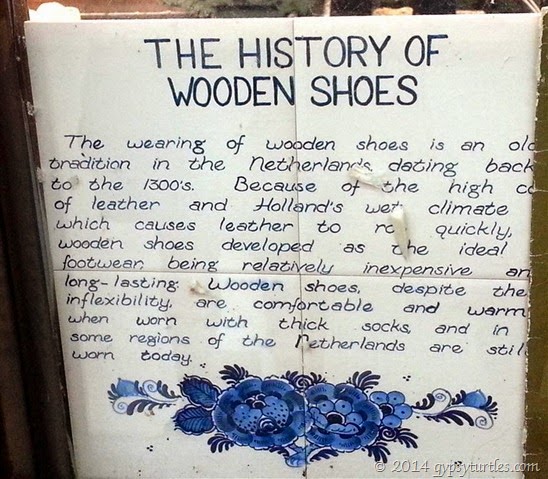 THE HISTORY OF
WOODEN SHOES
The wearing of wooden shoes is an old
tradition in the Netherlands dating back
to the 1300's. Because of the high co
of leather and Holland's wet climate
which causes leather to rot quickly,
wooden shoes developed as the ideal
footwear being relatively inexpensive an
long-lasting. Wooden shoes, despite the
inflexibility, are comfortable and warm
when worn with thick socks, and in
some regions of the Netherlands are stil
worn today.
© 2014 gypsyturtles.com